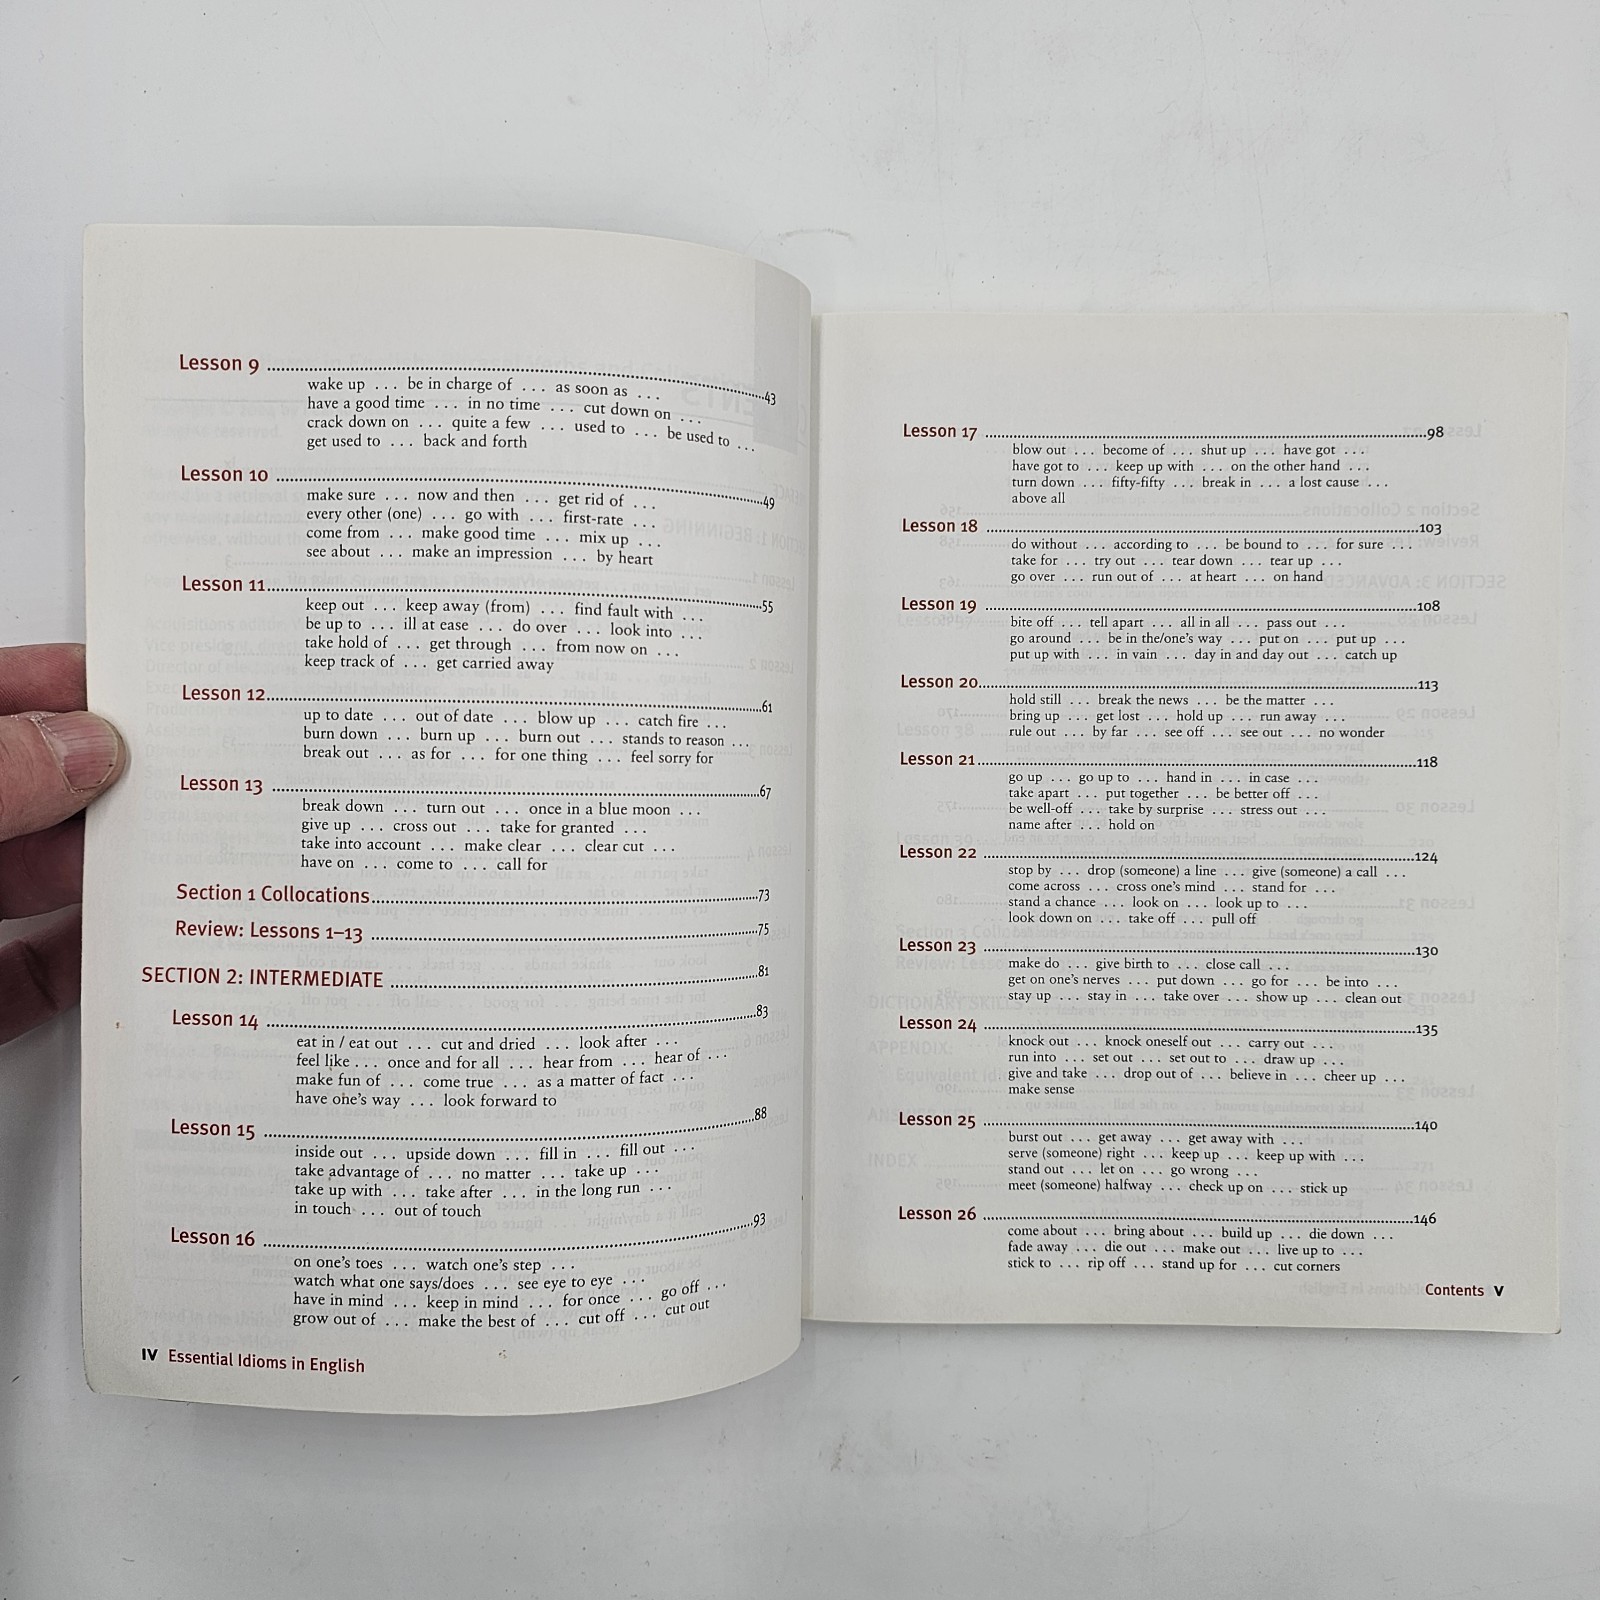 Lesson 9 ...43
wake up ... be in charge of ... as soon as ...
have a good time ... in no time ... cut down on ...
crack down on ... quite a few ... used to ... be used to ...
get used to ... back and forth
Lesson 10 ...49
make sure ... now and then ... get rid of ...
every other (one) ... go with ... first-rate ...
come from ... make good time ... mix up ...
see about ... make an impression ... by heart
Lesson 11...55
keep out ... keep away (from) ... find fault with ...
be up to ... ill at ease ... do over ... look into ...
take hold of ... get through ... from now on ...
keep track of ... get carried away
Lesson 12...61
up to date ... out of date ... blow up ... catch fire ...
burn down ... burn up ... burn out ... stands to reason ...
break out ... as for ... for one thing ... feel sorry for
Lesson 13 ...67
break down ... turn out ... once in a blue moon ...
give up ... cross out ... take for granted ...
take into account ... make clear ... clear cut ...
have on ... come to ... call for
Section 1 Collocations...73
Review: Lessons 1–13 ...75
SECTION 2: INTERMEDIATE ...81
Lesson 14 ...83
eat in / eat out ... cut and dried ... look after ...
feel like ... once and for all ... hear from ... hear of ...
make fun of ... come true ... as a matter of fact ...
have one's way ... look forward to
Lesson 15 ...88
inside out ... upside down ... fill in ... fill out ...
take advantage of ... no matter ... take up ...
take up with ... take after ... in the long run ...
in touch ... out of touch
Lesson 16 ...93
on one's toes ... watch one's step ...
watch what one says/does ... see eye to eye ...
have in mind ... keep in mind ... for once ... go off ...
grow out of ... make the best of ... cut off ... cut out
IV Essential Idioms in English
Lesson 17 ...98
blow out ... become of ... shut up ... have got ...
have got to ... keep up with ... on the other hand ...
turn down ... fifty-fifty ... break in ... a lost cause ...
above all
Lesson 18 ...103
do without ... according to ... be bound to ... for sure ...
take for ... try out ... tear down ... tear up ...
go over ... run out of ... at heart ... on hand
Lesson 19 ...108
bite off ... tell apart ... all in all ... pass out ...
go around ... be in the/one's way ... put on ... put up ...
put up with ... in vain ... day in and day out ... catch up
Lesson 20...113
hold still ... break the news ... be the matter ...
bring up ... get lost ... hold up ... run away ...
rule out ... by far ... see off ... see out ... no wonder
Lesson 21...118
go up ... go up to ... hand in ... in case ...
take apart ... put together ... be better off ...
be well-off ... take by surprise ... stress out ...
name after ... hold on
Lesson 22 ...124
stop by ... drop (someone) a line ... give (someone) a call ...
come across ... cross one's mind ... stand for ...
stand a chance ... look on ... look up to ...
look down on ... take off ... pull off
Lesson 23 ...130
make do ... give birth to ... close call ...
get on one's nerves ... put down ... go for ... be into ...
stay up ... stay in ... take over ... show up ... clean out
Lesson 24 ...135
knock out ... knock oneself out ... carry out ...
run into ... set out ... set out to ... draw up ...
give and take ... drop out of ... believe in ... cheer up ...
make sense
Lesson 25 ...140
burst out ... get away ... get away with ...
serve (someone) right ... keep up ... keep up with ...
stand out ... let on ... go wrong ...
meet (someone) halfway ... check up on ... stick up
Lesson 26 ...146
come about ... bring about ... build up ... die down ...
fade away ... die out ... make out ... live up to ...
stick to ... rip off ... stand up for ... cut corners
Contents V